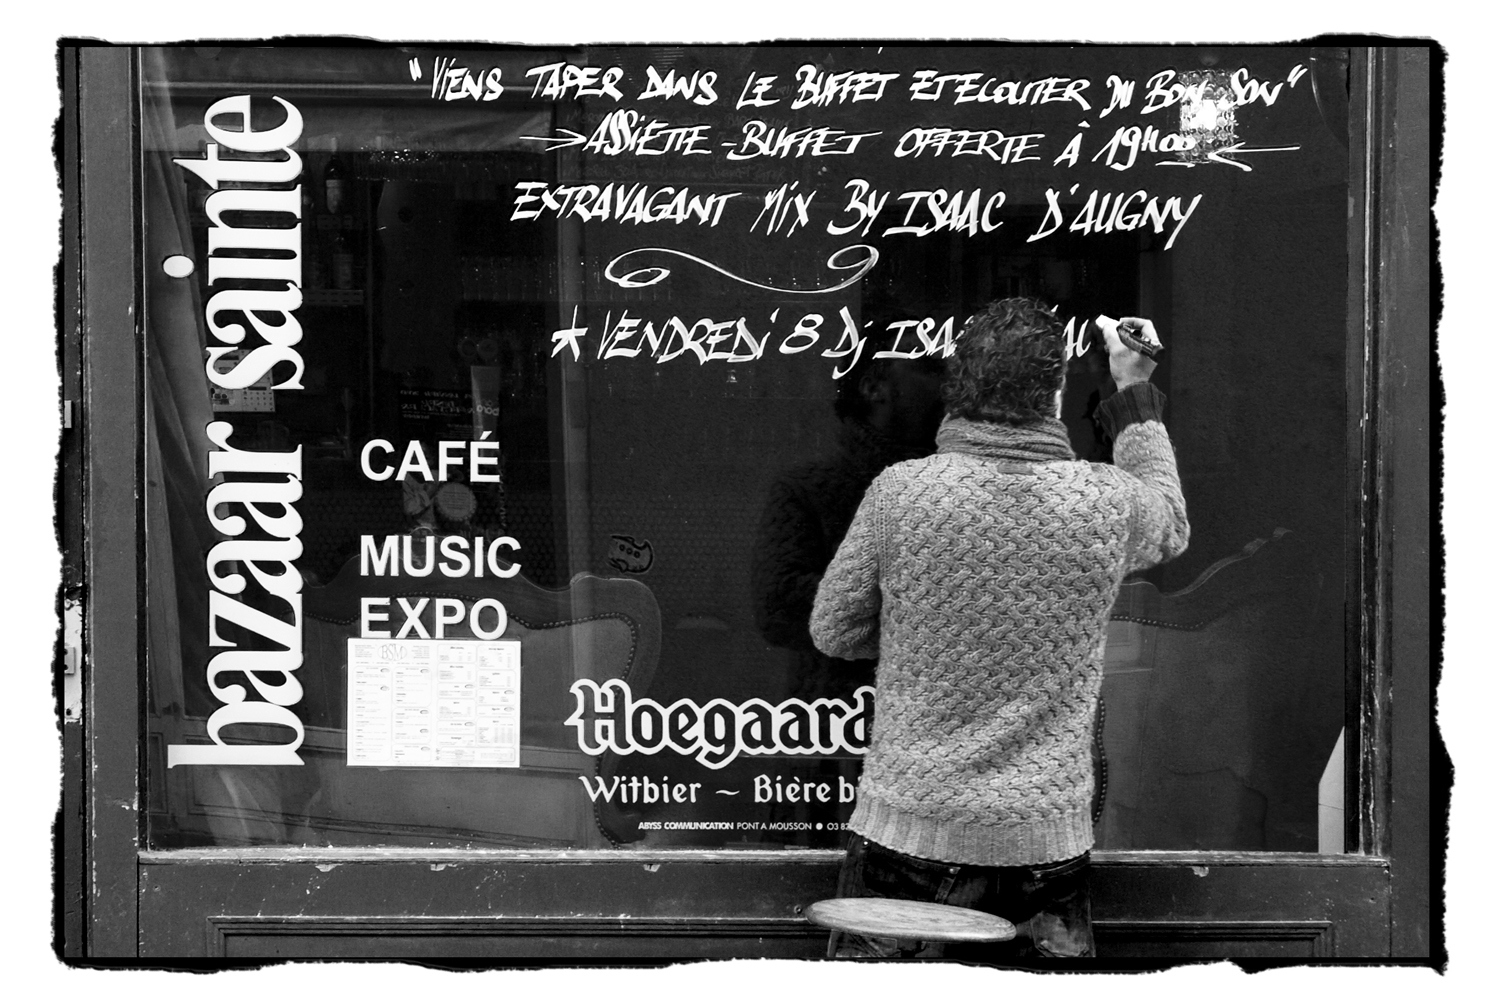 "VIENS TAPER DANS LE BUFFET ET ECOUTER DU BON SON"
ASSIETTE-BUFFET OFFERTE À 19H00
EXTRAVAGANT MIX BY ISAAC D'AUGNY
* VENDREDI 8 Dj ISA
bazaar sainte
CAFÉ
MUSIC
EXPO
BSM
Hoegaard
Witbier ~ Bière b
ABYSS COMMUNICATION PONT A MOUSSON ● 03 87